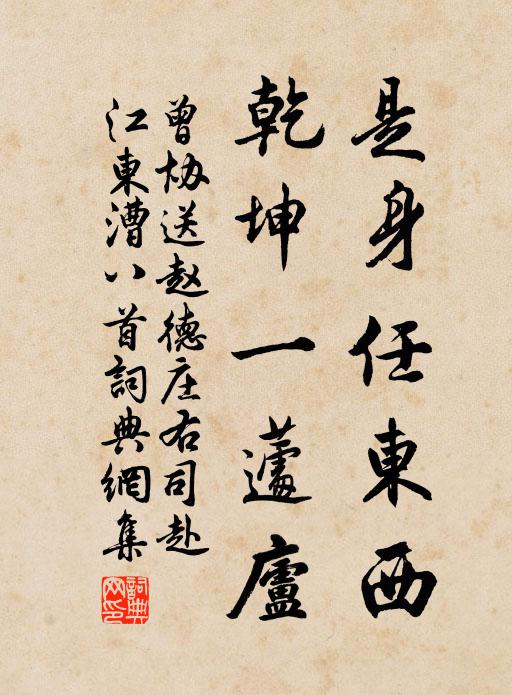 是身任東西
乾坤一蘧廬
曾協送趙德庄右司赴
江東漕八首詞典網集
詞典網印